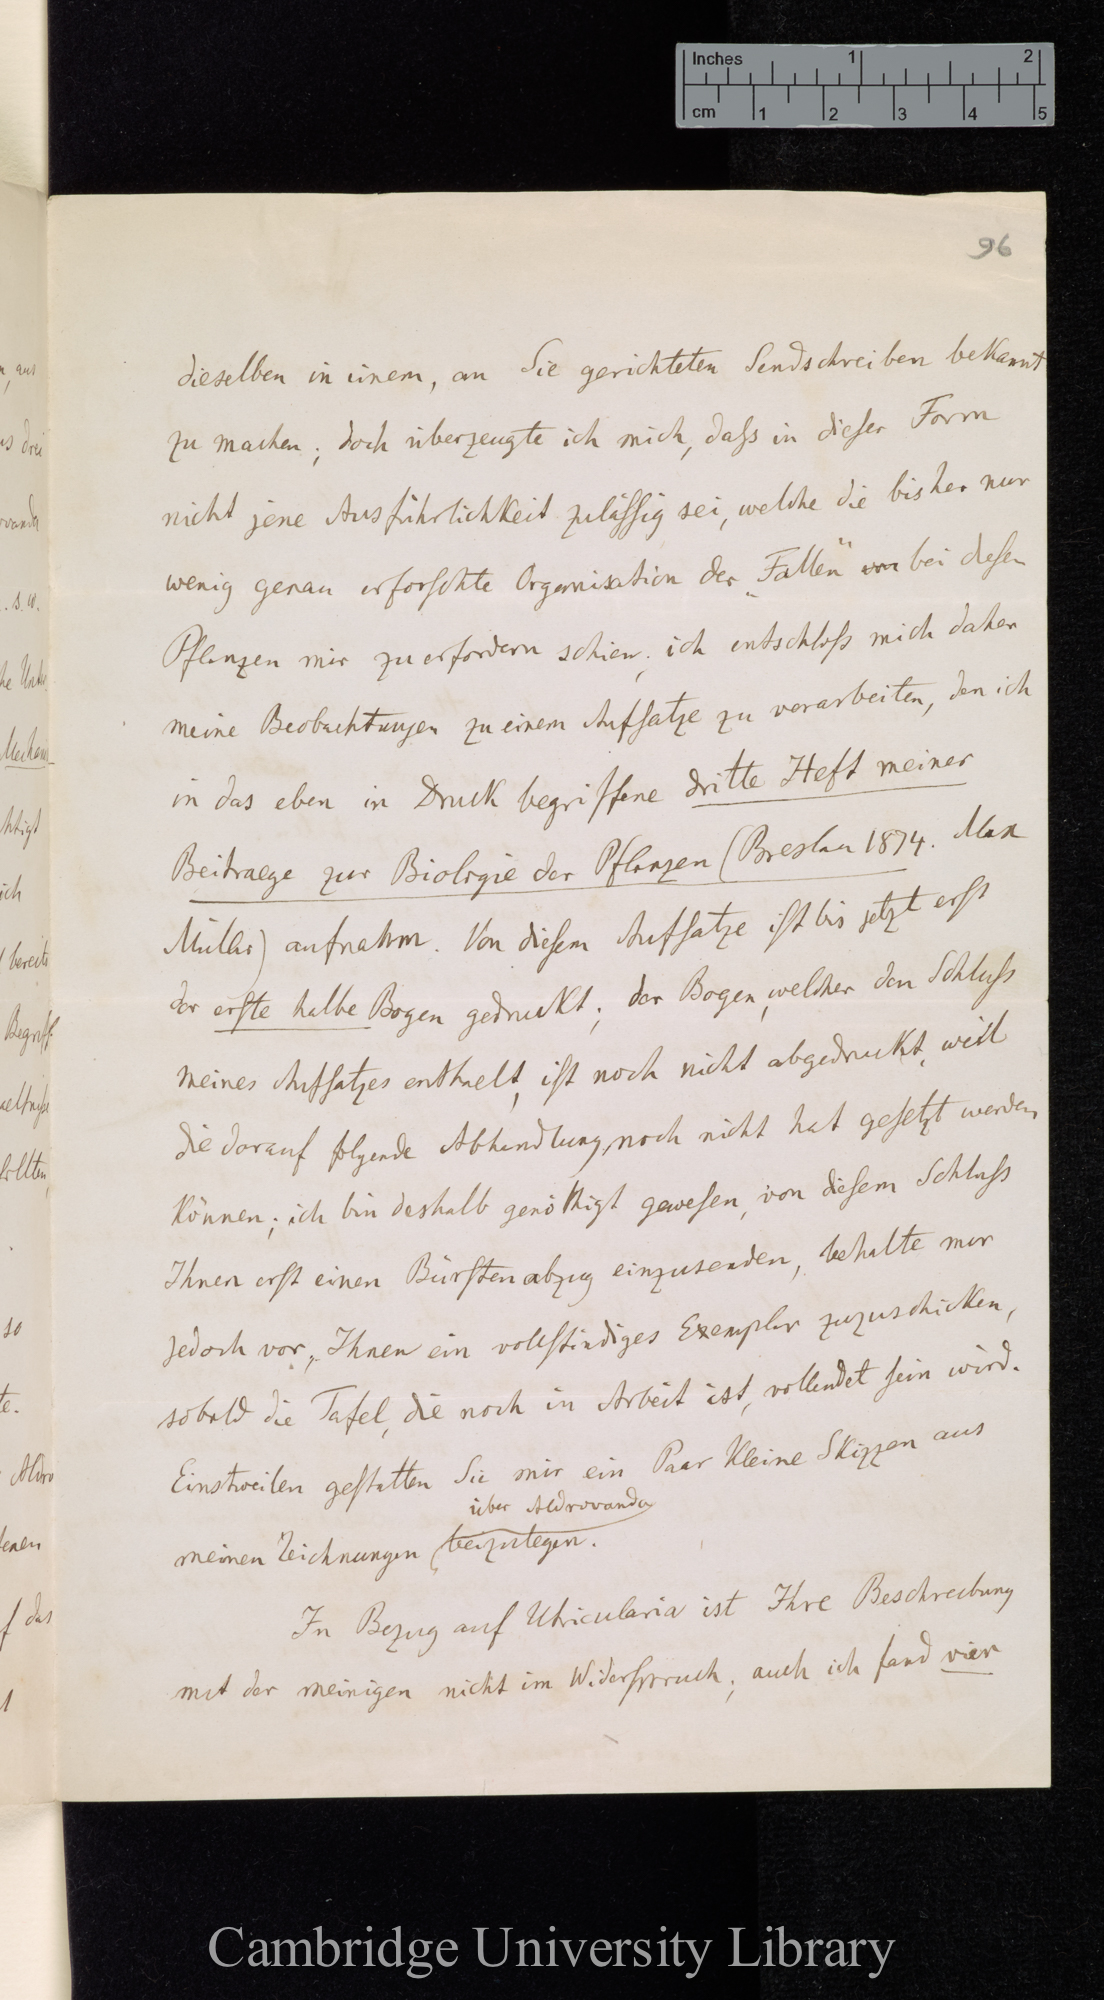 Inches 1 2
cm 1 2 3 4 5
96
dieselben in einem, an Sie gerichteten Sendschreiben bekannt
zu machen; doch überzeugte ich mich, daſs in dieſer Form
nicht jene Ausführlichkeit zuläſſig sei, welche die bisher nur
wenig genau erforſchte Organisation der „Fallen“ von bei dieſen
Pflanzen mir zu erfordern schien; ich entschloſs mich daher
meine Beobachtungen zu einem Aufſatze zu verarbeiten, den ich
in das eben in Druck begriffene dritte Heft meiner
Beitraege zur Biologie der Pflanzen (Breslau 1874. Max
Müller) aufnahm. Von dieſem Aufſatze iſt bis jetzt erſt
der erſte halbe Bogen gedruckt; der Bogen, welcher den Schluſs
meines Aufſatzes enthaelt, iſt noch nicht abgedruckt, weil
die darauf folgende Abhandlung noch nicht hat geſetzt werden
können; ich bin deshalb genöthigt geweſen, von dieſem Schluſs
Ihnen erſt einen Bürſtenabzug einzusenden, behalte mir
jedoch vor, Ihnen ein vollſtändiges Exemplar zuzuschicken,
sobald die Tafel, die noch in Arbeit ist, vollendet ſein wird.
Einstweilen geſtatten Sie mir ein Paar kleine Skizzen aus
über Aldrovanda
meinen Zeichnungen beizulegen.
In Bezug auf Utricularia ist Ihre Beschreibung
mit der meinigen nicht im Widerſpruch; auch ich fand vier
Cambridge University Library